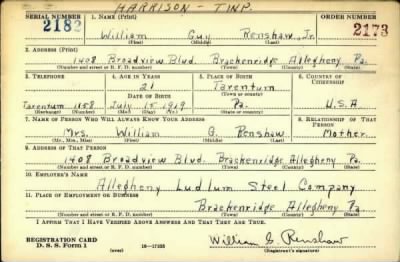 HARRISON - TWP.
SERIAL NUMBER 1. NAME (Print) ORDER NUMBER
2182 William Guy Renshaw, Jr. 2173
(First) (Middle) (Last)
2. ADDRESS (Print)
1408 Broadview Blvd. Brackenridge Allegheny Pa.
(Number and street or R. F. D. number) (Town) (County) (State)
3. TELEPHONE 4. AGE IN YEARS 5. PLACE OF BIRTH 6. COUNTRY OF CITIZENSHIP
21 Tarentum
DATE OF BIRTH (Town or county)
Tarentum 1158 July 15 1919 Pa. U.S.A
(Exchange) (Number) (Mo.) (Day) (Yr.) (State or country)
7. NAME OF PERSON WHO WILL ALWAYS KNOW YOUR ADDRESS 8. RELATIONSHIP OF THAT PERSON
Mrs. William G. Renshaw Mother
(Mr., Mrs., Miss) (First) (Middle) (Last)
9. ADDRESS OF THAT PERSON
1408 Broadview Blvd. Brackenridge Allegheny Pa
(Number and street or R. F. D. number) (Town) (County) (State)
10. EMPLOYER'S NAME
Allegheny Ludlum Steel Company
11. PLACE OF EMPLOYMENT OR BUSINESS
Brackenridge Allegheny Pa.
(Number and street or R. F. D. number) (Town) (County) (State)
I AFFIRM THAT I HAVE VERIFIED ABOVE ANSWERS AND THAT THEY ARE TRUE.
REGISTRATION CARD
D. S. S. Form 1 (over) 16-17105 William G. Renshaw
(Registrant's signature)